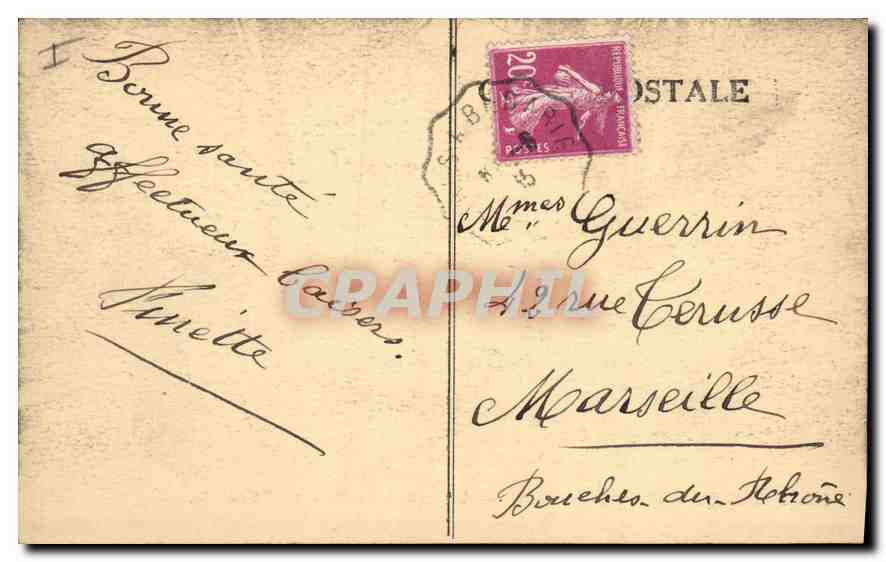 I
Bonne santé
affectueux baisers.
Ninette
POSTALE
20c
REPUBLIQUE FRANÇAISE
POSTES
Mmes Guerrin
42 rue Terusse
Marseille
Bouches-du-Rhône
CPARHIL